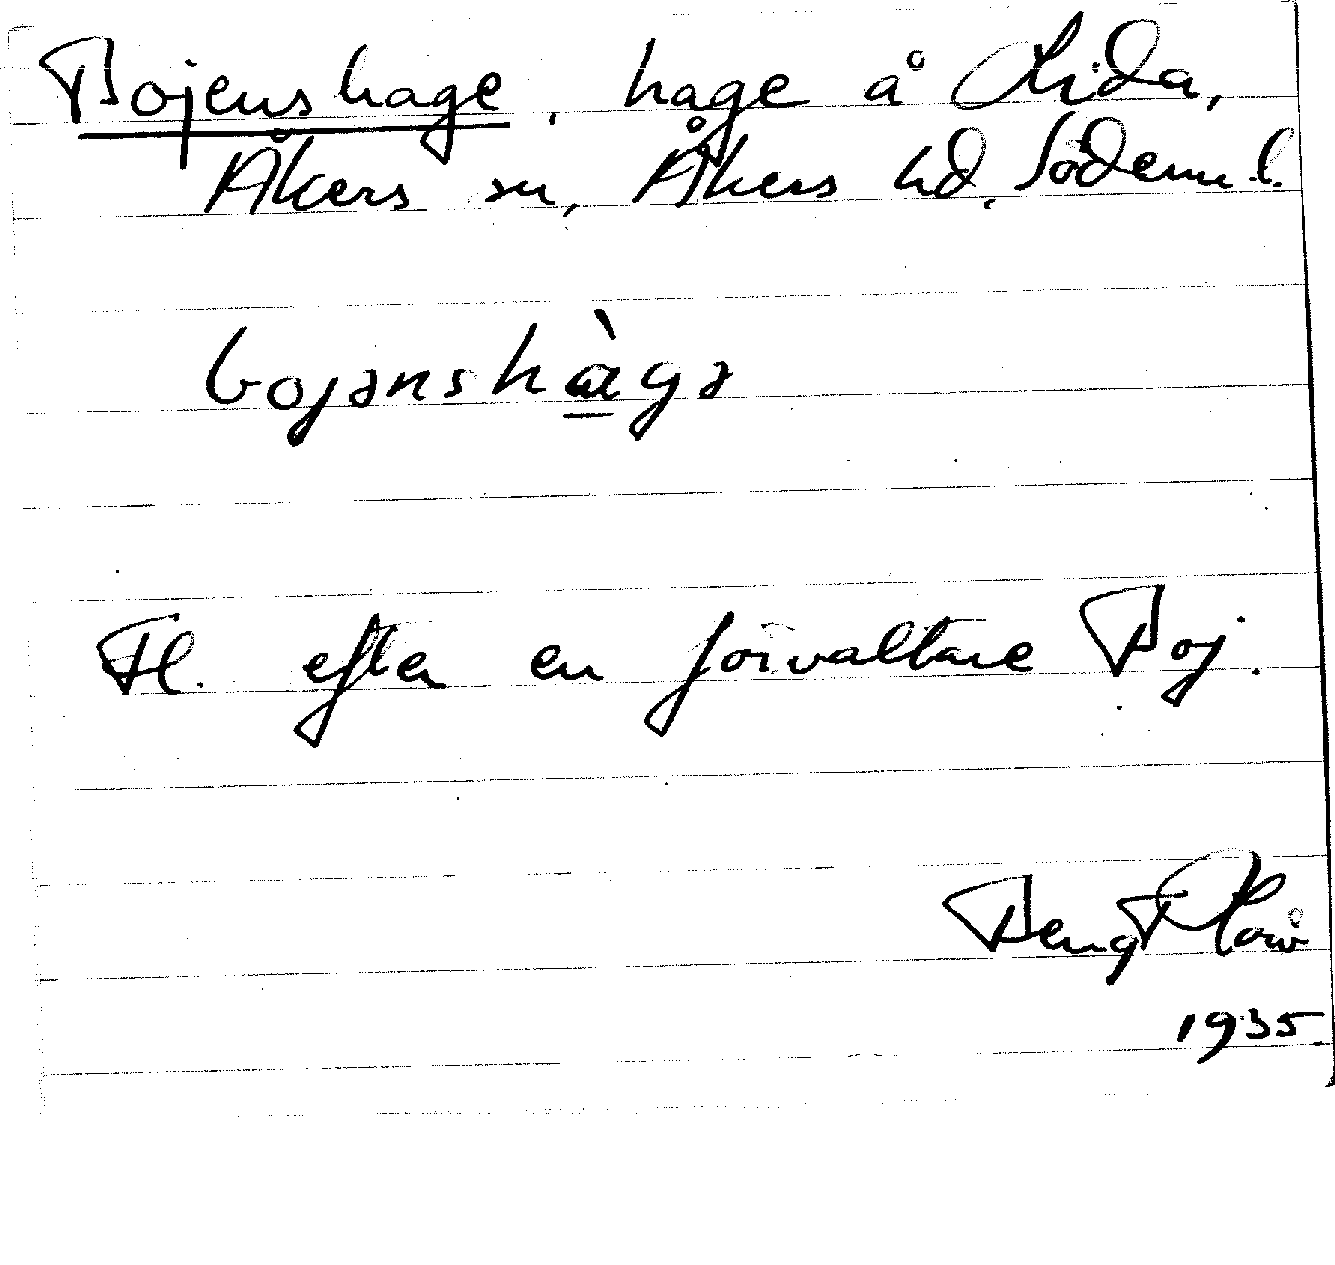 Bojenshage, hage å Lida,
Åkers sn, Åkers hd, Söderml.
bojənshɑ̀gə
efter en förvaltare Boj.
Bengt
1935.